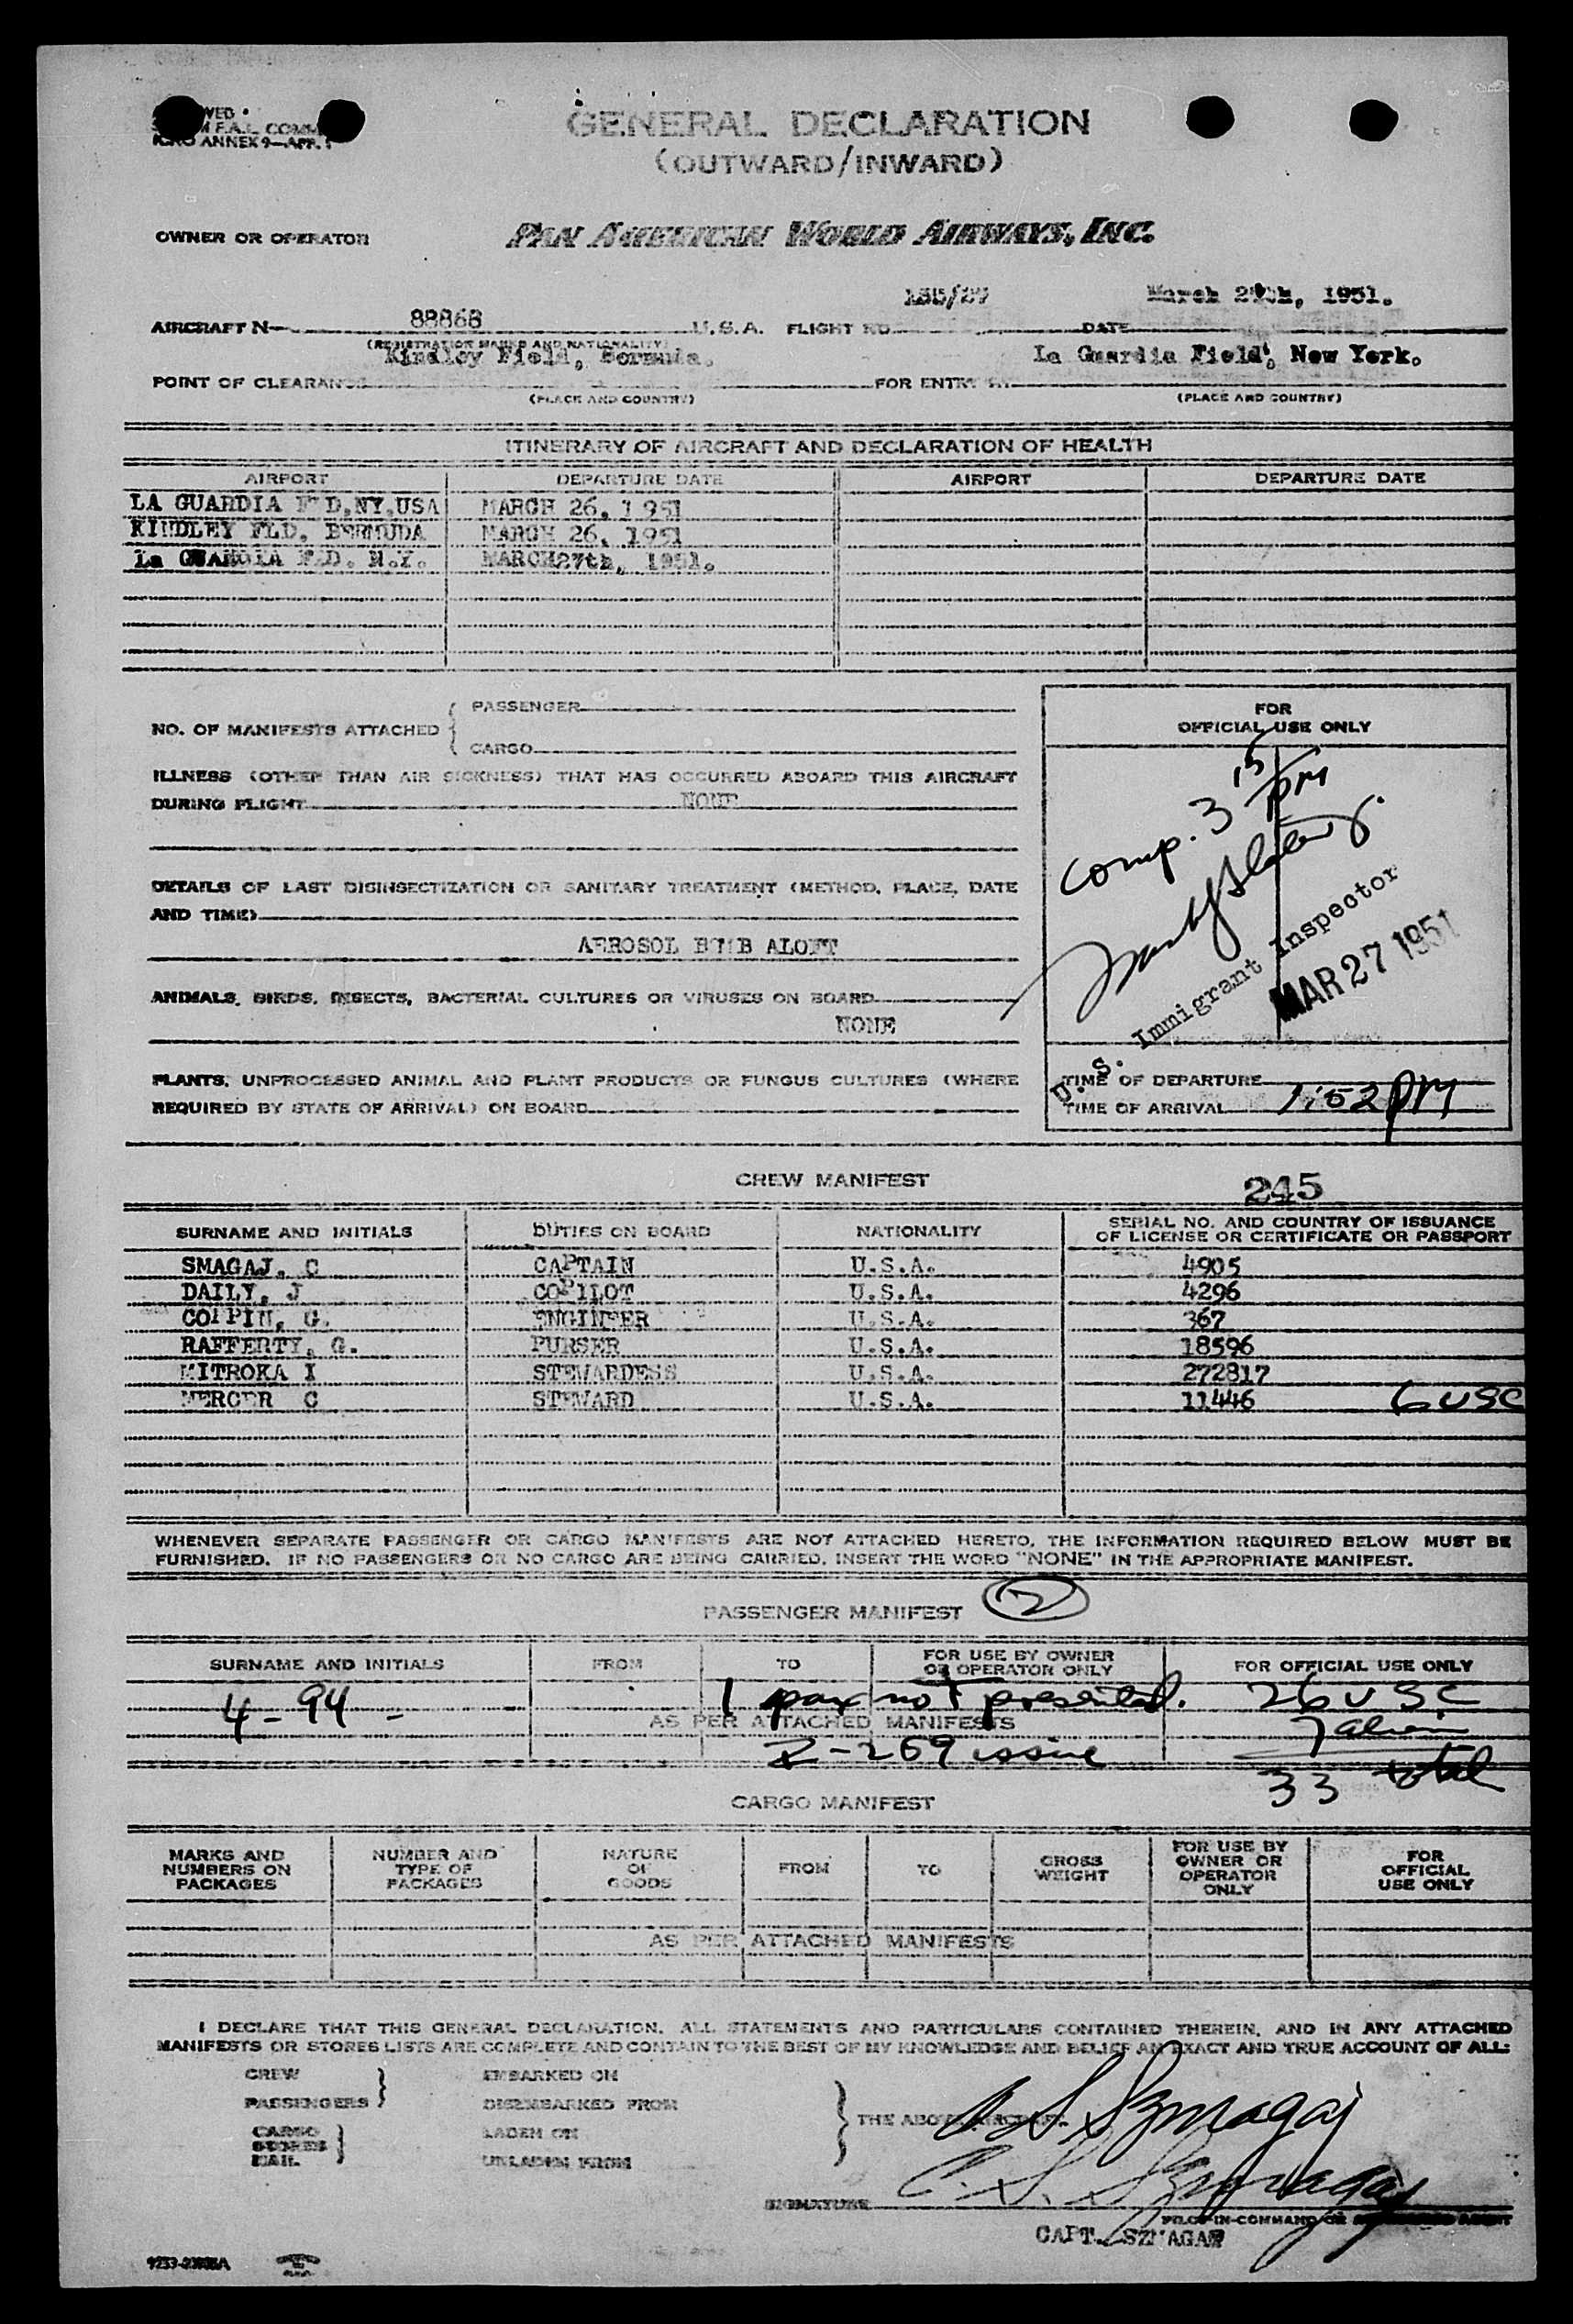 ANNEX 9—APP. 1
GENERAL DECLARATION
(OUTWARD/INWARD)
OWNER OR OPERATOR PAN AMERICAN WORLD AIRWAYS, INC.
AIRCRAFT N— 88868 U.S.A. FLIGHT NO. 155/27 DATE March 27th, 1951.
(REGISTRATION MARKS AND NATIONALITY)
POINT OF CLEARANCE Kindley Field, Bermuda. FOR ENTRY AT La Guardia Field, New York.
(PLACE AND COUNTRY) (PLACE AND COUNTRY)
ITINERARY OF AIRCRAFT AND DECLARATION OF HEALTH
AIRPORT DEPARTURE DATE AIRPORT DEPARTURE DATE
LA GUARDIA F D,NY,USA MARCH 26, 1951
KINDLEY FLD, BERMUDA MARCH 26, 1951
La GUARDIA F D. N.Y. MARCH27th, 1951.
NO. OF MANIFESTS ATTACHED { PASSENGER
CARGO
FOR
OFFICIAL USE ONLY
ILLNESS (OTHER THAN AIR SICKNESS) THAT HAS OCCURRED ABOARD THIS AIRCRAFT
DURING FLIGHT NONE
comp. 3 15 PM
DETAILS OF LAST DISINSECTIZATION OR SANITARY TREATMENT (METHOD, PLACE, DATE
AND TIME)
AEROSOL BOMB ALOFT
U. S. Immigrant Inspector
MAR 27 1951
ANIMALS, BIRDS, INSECTS, BACTERIAL CULTURES OR VIRUSES ON BOARD
NONE
PLANTS, UNPROCESSED ANIMAL AND PLANT PRODUCTS OR FUNGUS CULTURES (WHERE
REQUIRED BY STATE OF ARRIVAL) ON BOARD
TIME OF DEPARTURE
TIME OF ARRIVAL 1:52 PM
CREW MANIFEST 245
SURNAME AND INITIALS DUTIES ON BOARD NATIONALITY SERIAL NO. AND COUNTRY OF ISSUANCE
OF LICENSE OR CERTIFICATE OR PASSPORT
SMAGAJ, C CAPTAIN U.S.A. 4905
DAILY, J COPILOT U.S.A. 4296
COPPIN, G. ENGINEER U.S.A. 367
RAFFERTY, G. PURSER U.S.A. 18596
MITROKA I STEWARDESS U.S.A. 272817
MERCER C STEWARD U.S.A. 11446 6 USC
WHENEVER SEPARATE PASSENGER OR CARGO MANIFESTS ARE NOT ATTACHED HERETO, THE INFORMATION REQUIRED BELOW MUST BE
FURNISHED. IF NO PASSENGERS OR NO CARGO ARE BEING CARRIED, INSERT THE WORD "NONE" IN THE APPROPRIATE MANIFEST.
PASSENGER MANIFEST 2
SURNAME AND INITIALS FROM TO FOR USE BY OWNER
OR OPERATOR ONLY FOR OFFICIAL USE ONLY
4-94 - 1 pax not presented. 26 USC
AS PER ATTACHED MANIFESTS 7 alien
2-269 issue
33 total
CARGO MANIFEST
MARKS AND
NUMBERS ON
PACKAGES
NUMBER AND
TYPE OF
PACKAGES
NATURE
OF
GOODS
FROM
TO
GROSS
WEIGHT
FOR USE BY
OWNER OR
OPERATOR
ONLY
FOR
OFFICIAL
USE ONLY
AS PER ATTACHED MANIFESTS
I DECLARE THAT THIS GENERAL DECLARATION, ALL STATEMENTS AND PARTICULARS CONTAINED THEREIN, AND IN ANY ATTACHED
MANIFESTS OR STORES LISTS ARE COMPLETE AND CONTAIN TO THE BEST OF MY KNOWLEDGE AND BELIEF AN EXACT AND TRUE ACCOUNT OF ALL:
CREW EMBARKED ON
PASSENGERS DISEMBARKED FROM
CARGO LADEN ON
STORES
MAIL UNLADEN FROM
THE ABOVE AIRCRAFT.
C. S. Szmagaj
SIGNATURE C. S. Szmagaj
PILOT-IN-COMMAND OR
CAPT. SZMAGAJ